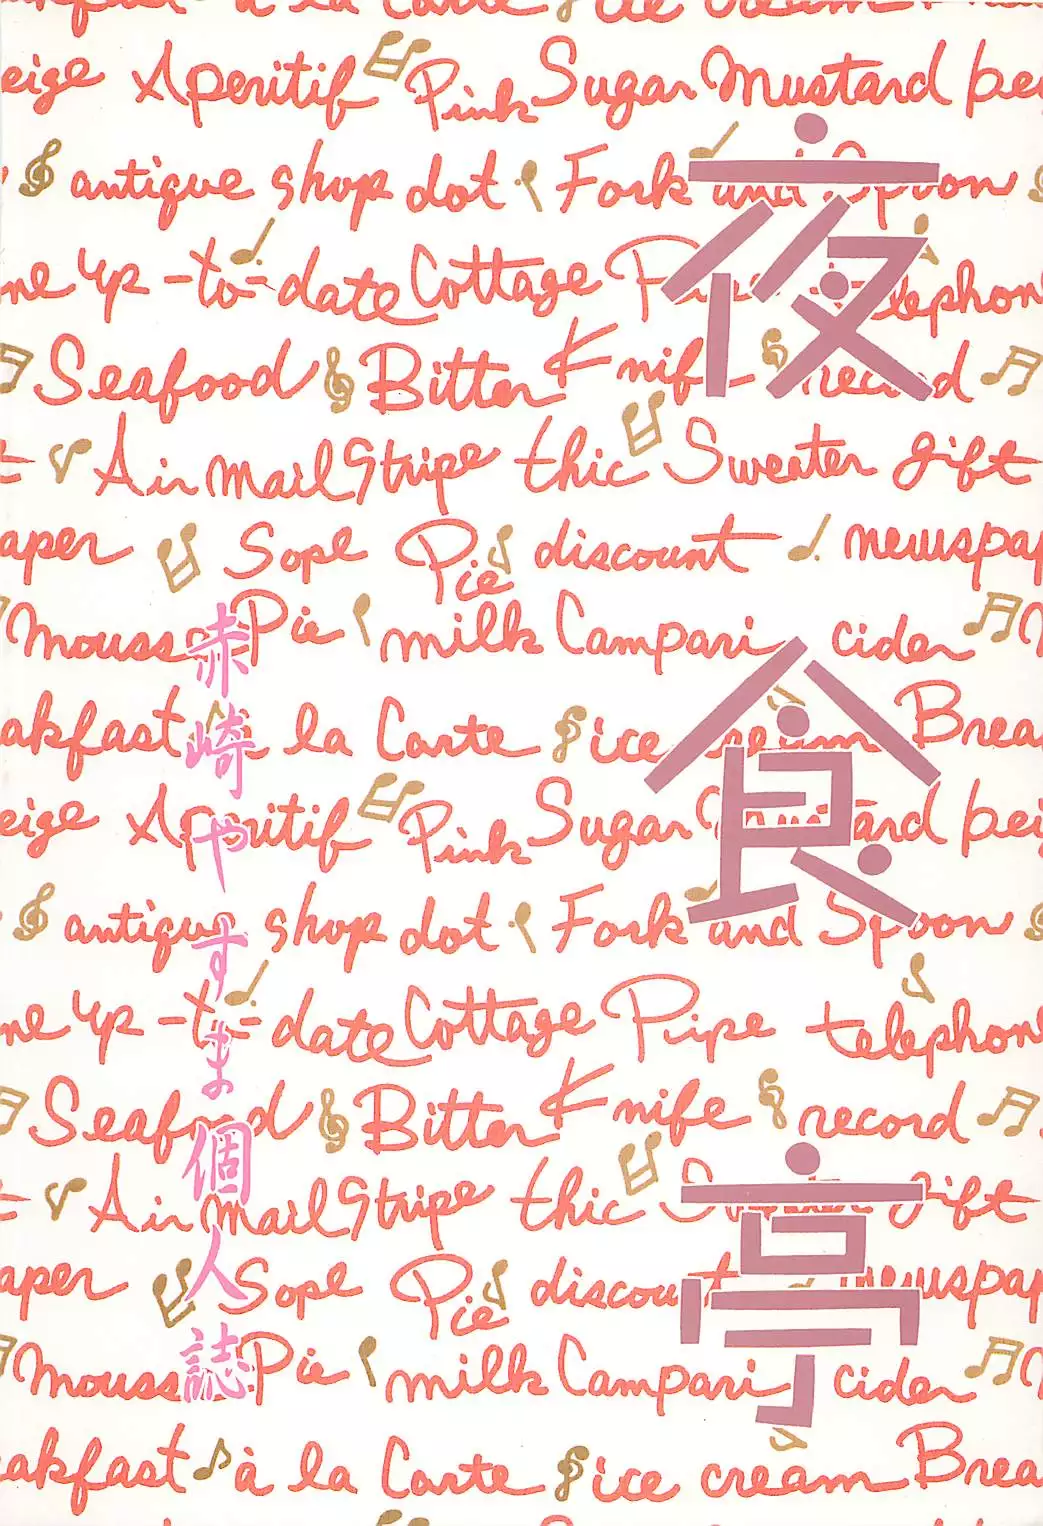 夜食亭
赤崎やすま個人誌
à la Carte ice cream
eige Aperitif Pink Sugar Mustard bei
antique shop dot Fork and Spoon
me up-to-date Cottage Pipe telephon
Seafood Bitter Knife record
t Air mail Stripe thic Sweater gift
aper Sope Pie discount newspap
Mousse Pie milk Campari cider
akfast à la Carte ice cream Brea
eige Aperitif Pink Sugar Mustard bei
antique shop dot Fork and Spoon
me up-to-date Cottage Pipe telephon
Seafood Bitter Knife record
t Air mail Stripe thic Sweater gift
aper Sope Pie discount newspap
Mousse Pie milk Campari cider
akfast à la Carte ice cream Brea